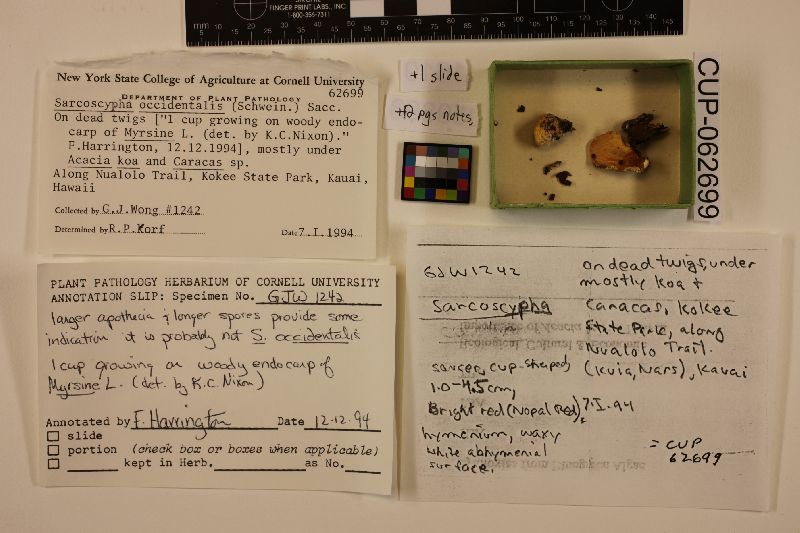 FINGER PRINT LABS., INC
1-800-356-7311
mm 5 10 20 30 40 50 60 70 80 90 100 110 120 130 140
New York State College of Agriculture at Cornell University
DEPARTMENT OF PLANT PATHOLOGY
62699
Sarcoscypha occidentalis (Schwein.) Sacc.
On dead twigs ["1 cup growing on woody endo-
carp of Myrsine L. (det. by K.C.Nixon)."
F.Harrington, 12.12.1994], mostly under
Acacia koa and Caracas sp.
Along Nualolo Trail, Kokee State Park, Kauai,
Hawaii
Collected by G.J.Wong #1242
Determined by R.P.Korf
Date 7.I.1994
+1 slide
+2 pgs notes
CUP-062699
PLANT PATHOLOGY HERBARIUM OF CORNELL UNIVERSITY
ANNOTATION SLIP: Specimen No. GJW 1242
larger apothecia & longer spores provide some
indication it is probably not S. occidentalis
1 cup growing on woody endocarp of
Myrsine L. (det. by K.C. Nixon)
Annotated by F. Harrington Date 12.12.94
slide
portion (check box or boxes when applicable)
kept in Herb. as No.
GJW1242
Sarcoscypha
saucer, cup-shaped,
1.0-4.5cm,
Bright red (Nopal Red),
hymenium, waxy
white abhymenial
surface.
on dead twigs, under
mostly koa &
Caracas, Kokee
State Park, along
Nualolo Trail.
(Kuia, Nars), Kauai
7.I.94
= CUP
62699